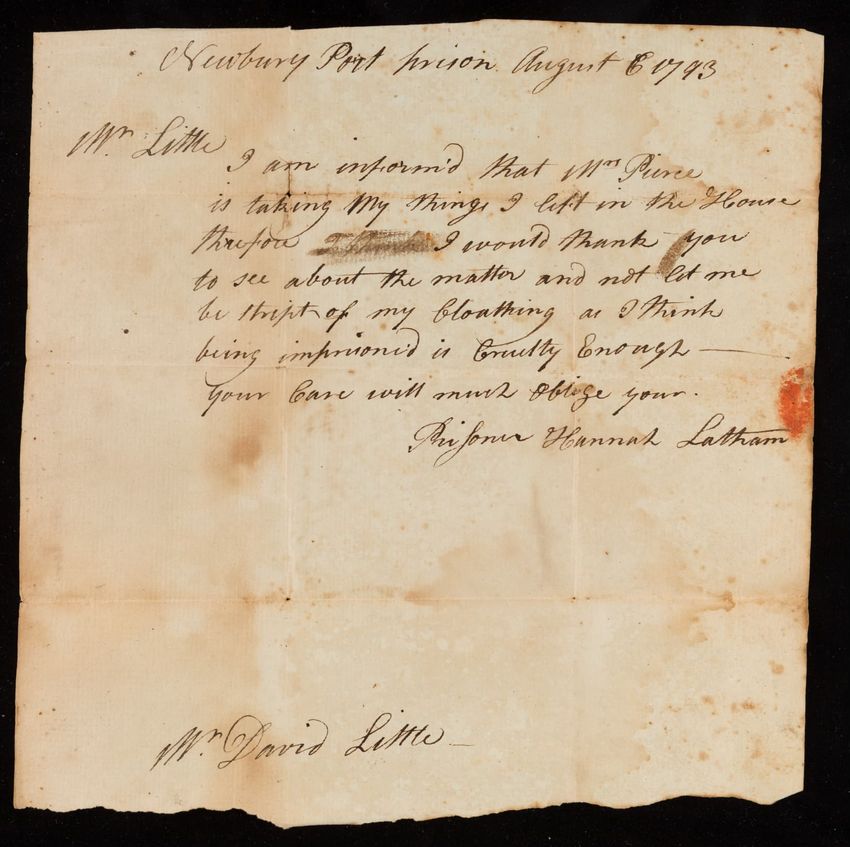 Newbury Port prison August 6 1793
Mr. Little
I am inform'd that Mrs Pierce
is taking My things I left in the House
threfore I would thank you
to see about the matter and not let me
be stript of my Cloathing as I think
being imprison'd is Cruelty Enough —
your Care will much Oblige your.
Prisoner Hannah Latham
Mr. David Little —